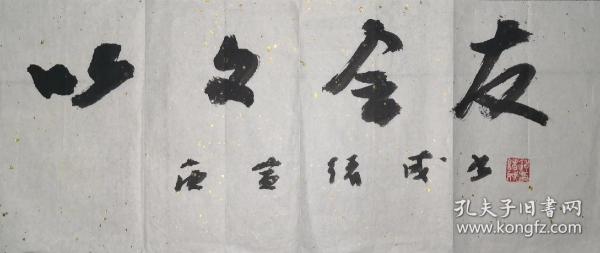 以文会友
绪成书
孔夫子旧书网
www.kongfz.com